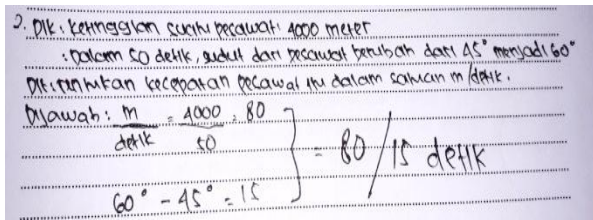 2. Dik : Ketinggian suatu pesawat : 4000 meter
: Dalam 50 detik, sudut dari pesawat berubah dari 45° menjadi 60°
Dit : tentukan kecepatan pesawat itu dalam satuan m/detik.
Dijawab : m/detik = 4000/50 = 80
60° - 45° = 15
= 80/15 detik